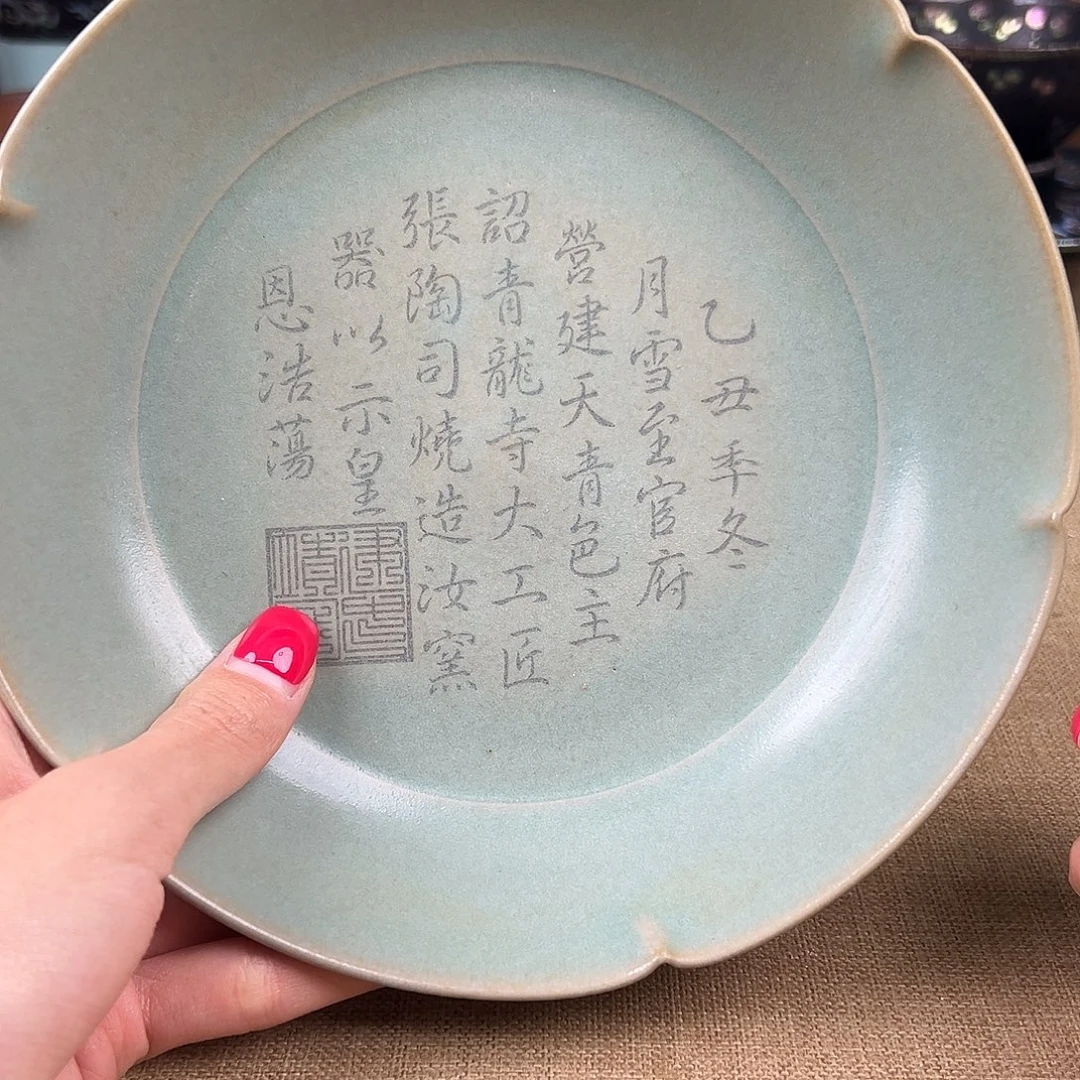 乙丑季冬
月雪至官府
營建天青色主
詔青龍寺大工匠
張陶司燒造汝窯
器以示皇
恩浩蕩